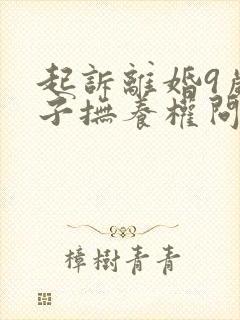 起訴離婚9歲
子撫養權問
樟樹青青